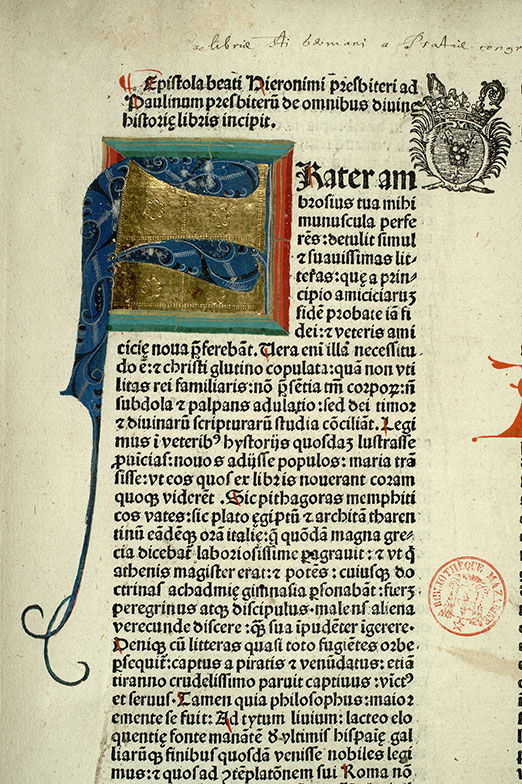 Epistola beati Hieronimi p̄sbiteri ad
Paulinum presbiterū de omnibus diuinę
historię libris incipit.
FRater am
brosius tua mihi
munuscula perfe
rēs: detulit simul
⁊ suauissimas lit-
teras: quę a prin-
cipio amiciciaruꝫ
fidē probate iā fi
dei: ⁊ veteris ami
cicię noua p̄ferebāt. Uera eni illa necessitu-
do ē: ⁊ christi glutino copulata: quā non vti
litas rei familiaris: nō p̄sētia tm̄ corpoꝝ: nō
subdola ⁊ palpans adulatio: sed dei timor
⁊ diuinarū scripturarū studia cōciliāt. Legi
mus ī veteribꝰ hystorijs quosdaꝫ lustrasse
ꝓuīcias: nouos adijsse populos: maria trā
sisse: vt eos quos ex libris nouerant coram
quoqꝫ viderēt. Sic pithagoras memphiti
cos vates: sic plato ęgiptū ⁊ architā tharen
tinū eādēqꝫ orā italię: q̄ quōdā magna gre-
cia dicebat̄ laboriosissime ꝑagrauit: ⁊ vt q̇
athenis magister erat: ⁊ potēs: cuiusqꝫ do
ctrinas achadmię gimnasia ꝑsonabāt: fieꝫ
peregrinus atqꝫ discipulus. malens aliena
verecunde discere: q̄ꝫ sua īpudēter īgerere.
Deniqꝫ cū litteras quasi toto fugiētes orbe
ꝑsequit̄: captus a piratis ⁊ venūdatus: etiā
tiranno crudelissimo paruit captiuus: victꝰ
et seruus. Tamen quia philosophus: maior
emente se fuit: Ad tytum liuium: lacteo elo
quentię fonte manātē ⁊ vltimis hispaię gal
liarūqꝫ finibus quosdā venisse nobiles legi
mus: ⁊ quos ad ꝯtēplatōnem sui Roma nō
BIBLIOTHEQUE MAZARINE